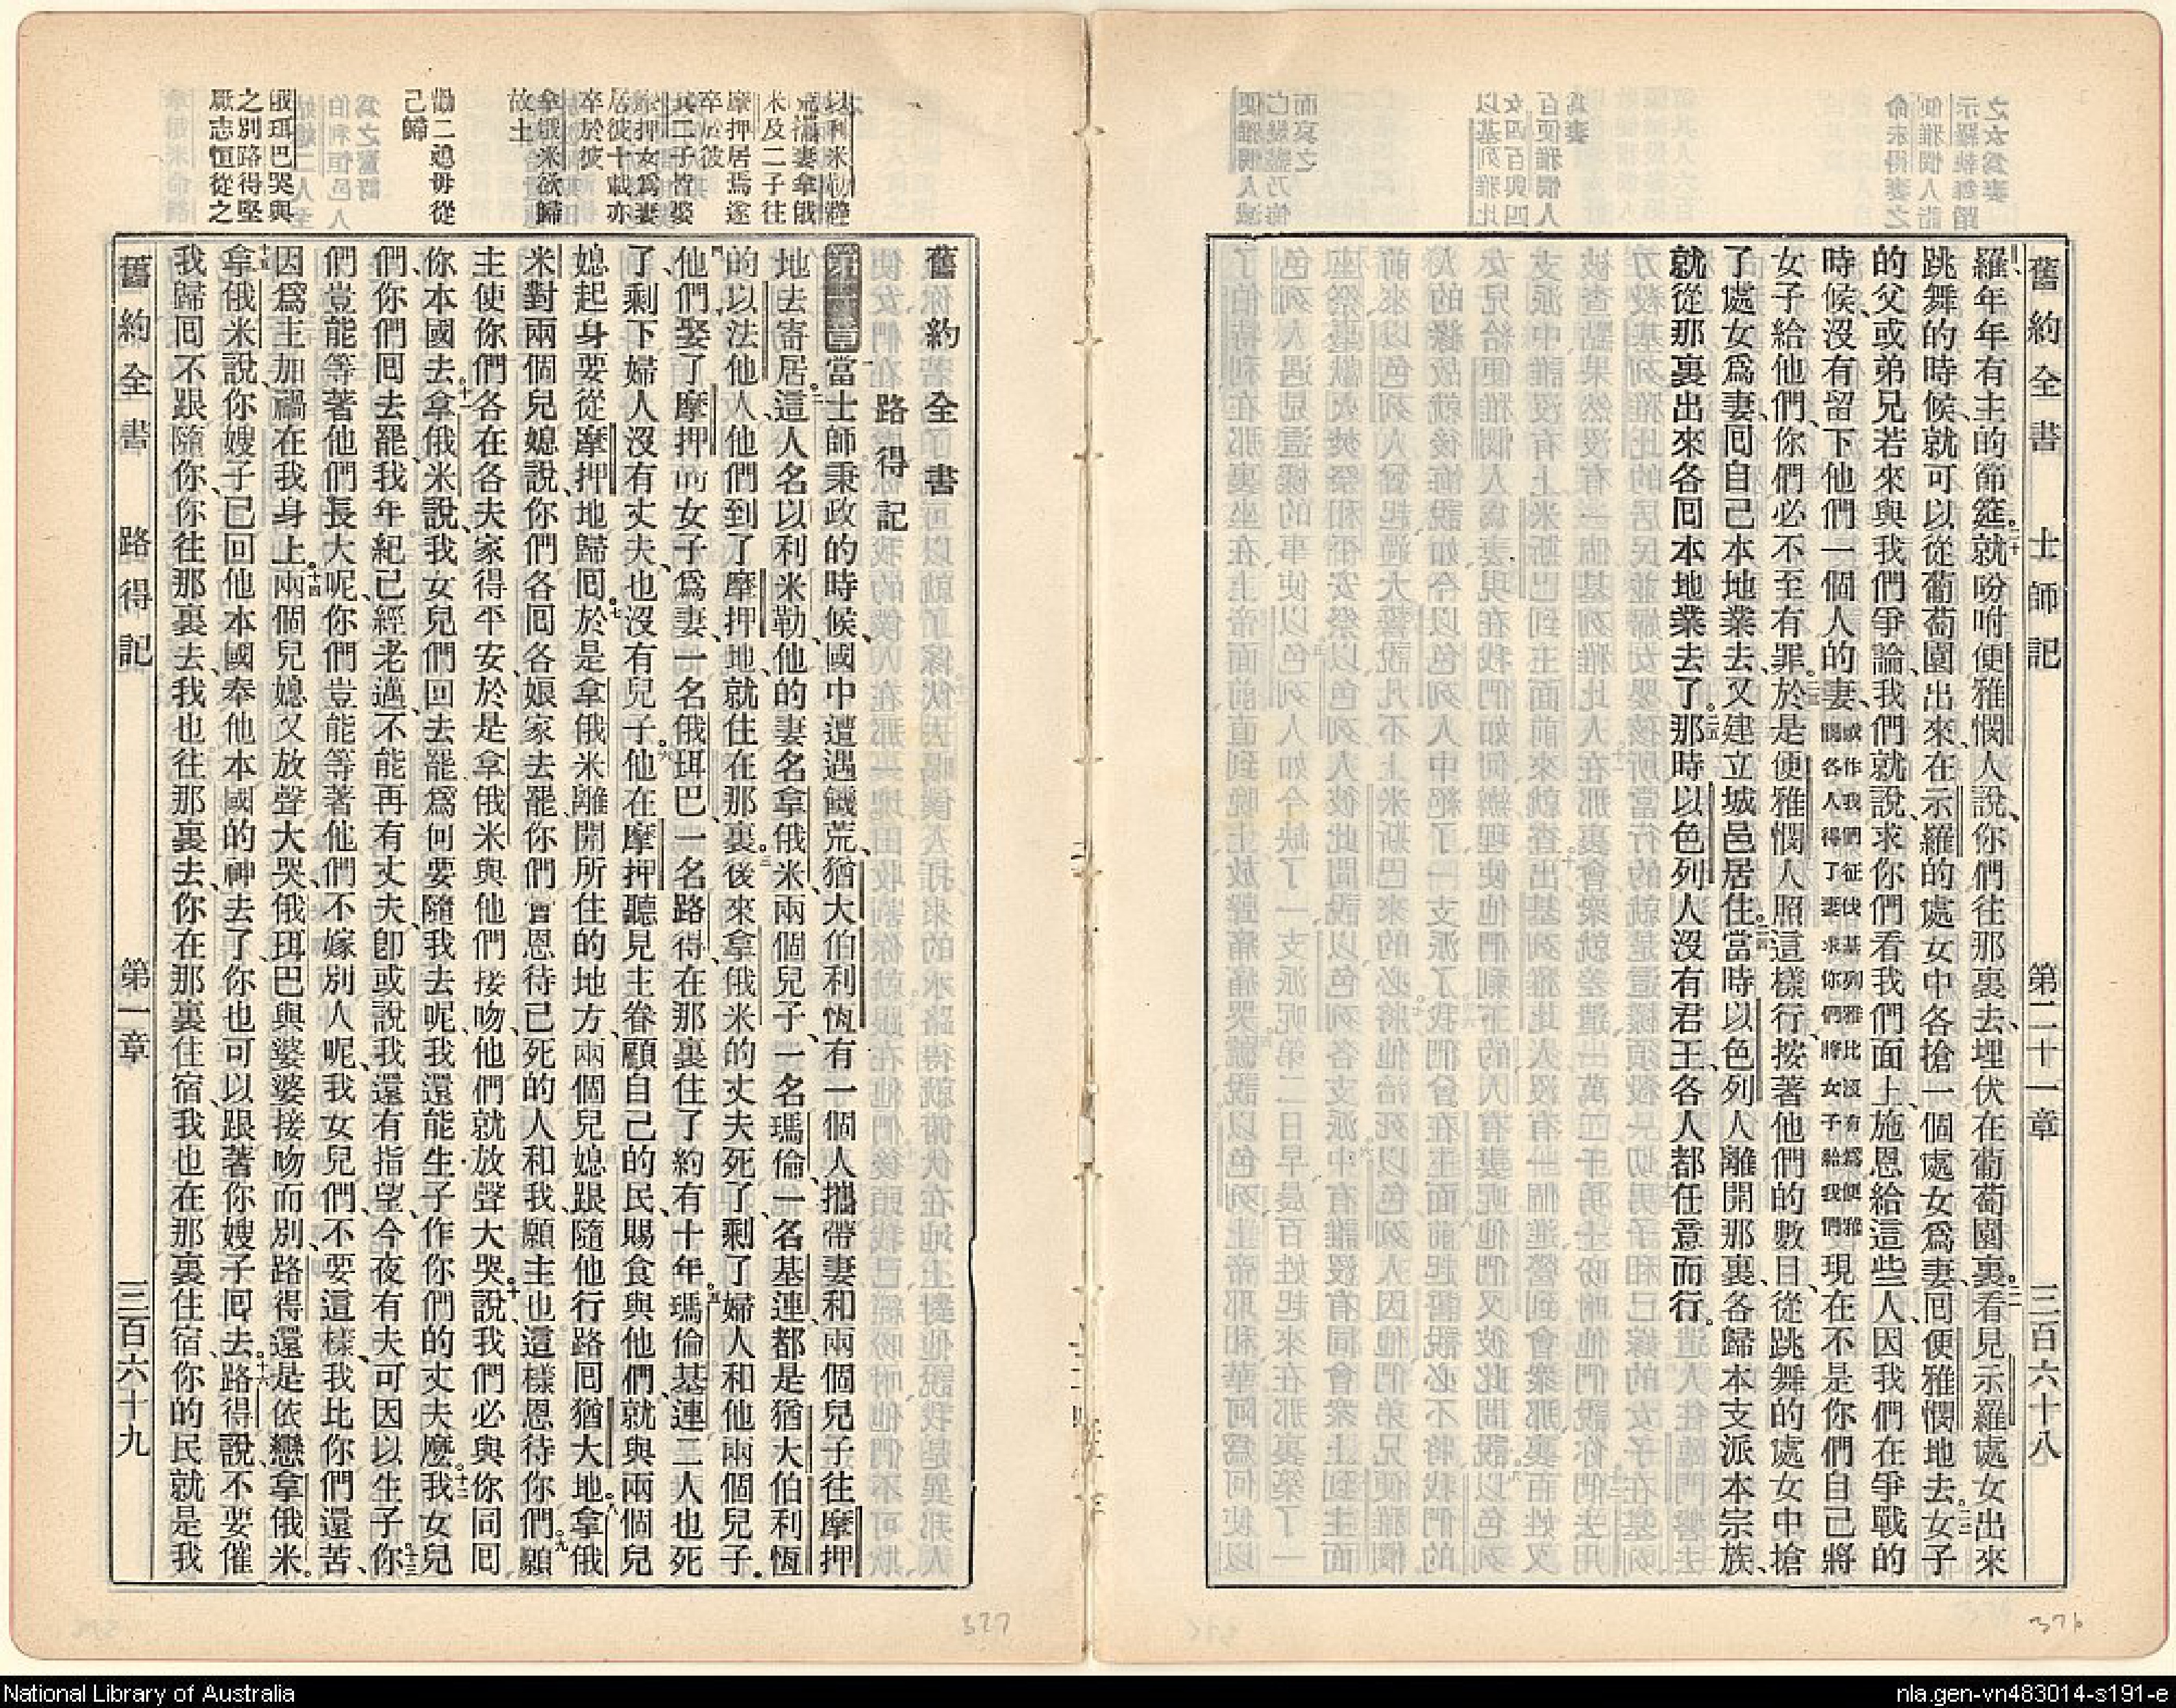 舊約全書 士師記 第二十一章 三百六十八
羅年年有主的節筵二十就吩咐便雅憫人說、你們往那裏去、埋伏在葡萄園裏二一看見示羅處女出來
跳舞的時候、就可以從葡萄園出來、在示羅的處女中、各搶一個處女爲妻、回便雅憫地去。二二女子
的父或弟兄若來與我們爭論、我們就說、求你們看我們面上、施恩給這些人、因我們在爭戰的
時候、沒有留下他們一個人的妻、或作我們征伐基列雅比沒有爲便雅憫各人得了妻求你們將女子給我們現在不是你們自己將
女子給他們、你們必不至有罪。二三於是便雅憫人照這樣行、按著他們的數目、從跳舞的處女中搶
了處女爲妻、回自己本地業去、又建立城邑居住。二四當時以色列人離開那裏、各歸本支派本宗族、
就從那裏出來、各回本地業去了。二五那時以色列人沒有君王、各人都任意而行。
以利米勒避
荒攜妻拿俄
米及二子往
摩押居焉遂
卒於彼
其二子皆娶
摩押女爲妻
居彼十載亦
卒於彼
拿俄米欲歸
故土
勸二媳毋從
己歸
俄珥巴哭與
之別路得堅
厥志恒從之
舊約全書
路得記
第一章當士師秉政的時候、國中遭遇饑荒、猶大伯利恆有一個人、攜帶妻和兩個兒子、往摩押
地去寄居。二這人名以利米勒、他的妻名拿俄米、兩個兒子、一名瑪倫、一名基連、都是猶大伯利恆
的以法他人、他們到了摩押地、就住在那裏。三後來拿俄米的丈夫死了、剩了婦人和他兩個兒子。
四他們娶了摩押的女子爲妻、一名俄珥巴、一名路得、在那裏住了約有十年。五瑪倫基連二人也死
了、剩下婦人沒有丈夫、也沒有兒子。六他在摩押聽見主眷顧自己的民、賜食與他們、就與兩個兒
媳起身、要從摩押地歸回。七於是拿俄米離開所住的地方、兩個兒媳跟隨他行路、回猶大地。八拿俄
米對兩個兒媳說、你們各回各娘家去罷、你們曾恩待已死的人和我、願主也這樣恩待你們。九願
主使你們各在各夫家得平安、於是拿俄米與他們接吻、他們就放聲大哭。十說、我們必與你同回
你本國去。十一拿俄米說、我女兒們回去罷、爲何要隨我去呢、我還能生子作你們的丈夫麼。十二我女兒
們、你們回去罷、我年紀已經老邁、不能再有丈夫、卽或說我還有指望、今夜有夫可因以生子、十三你
們豈能等著他們長大呢、你們豈能等著他們不嫁別人呢、我女兒們、不要這樣、我比你們還苦、
因爲主加禍在我身上。十四兩個兒媳又放聲大哭、俄珥巴與婆婆接吻而別、路得還是依戀拿俄米。
十五拿俄米說、你嫂子已回他本國、奉他本國的神去了、你也可以跟著你嫂子回去。十六路得說、不要催
我歸回不跟隨你、你往那裏去、我也往那裏去、你在那裏住宿、我也在那裏住宿、你的民就是我
舊約全書 路得記 第一章 三百六十九
376
377
National Library of Australia
nla.gen-vn483014-s191-e